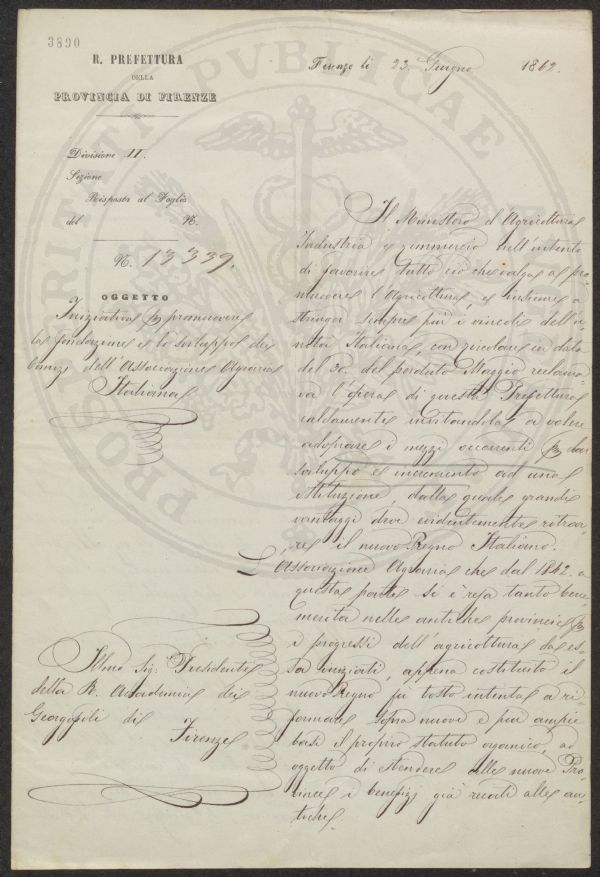 3890
R. PREFETTURA
DELLA
PROVINCIA DI FIRENZE
Firenze li 23. Giugno 1862.
Divisione II.
Sezione
Risposta al Foglio
del N.
N. 13339.
OGGETTO
Iniziativa p promuovere
la fondazione e lo sviluppo dei
Comizi dell'Associazione Agraria
Italiana
Illmo Sig: Presidente
della R. Accademia dei
Georgofili di
Firenze
Il Ministero d'Agricoltura
Industria e Commercio nell'intento
di favorire tutto ciò che valga a pro
muovere l'Agricoltura, e insieme a
stringer sempre più i vincoli dell'u
nità Italiana, con circolare in data
del 30. del perduto Maggio reclama
va l'opera di questa Prefettura
caldamente invitandola a volere
adoprare i mezzi occorrenti p dar
sviluppo e incremento ad una
istituzione, dalla quale grandi
vantaggi deve evidentemente ritrar
re il nuovo Regno Italiano.
L'Associazione Agraria che dal 1842. a
questa parte si è resa tanto bene
merita nelle antiche provincie p
i progressi dell'agricoltura da es
sa iniziati, appena costituito il
nuovo Regno fu tosto intenta a ri
formare sopra nuove e più ampie
basi il proprio statuto organico, ad
oggetto di stendere alle nuove Pro
vince i benefizj già recati alle an
tiche.
PUBLICAE
PROSPERITATI